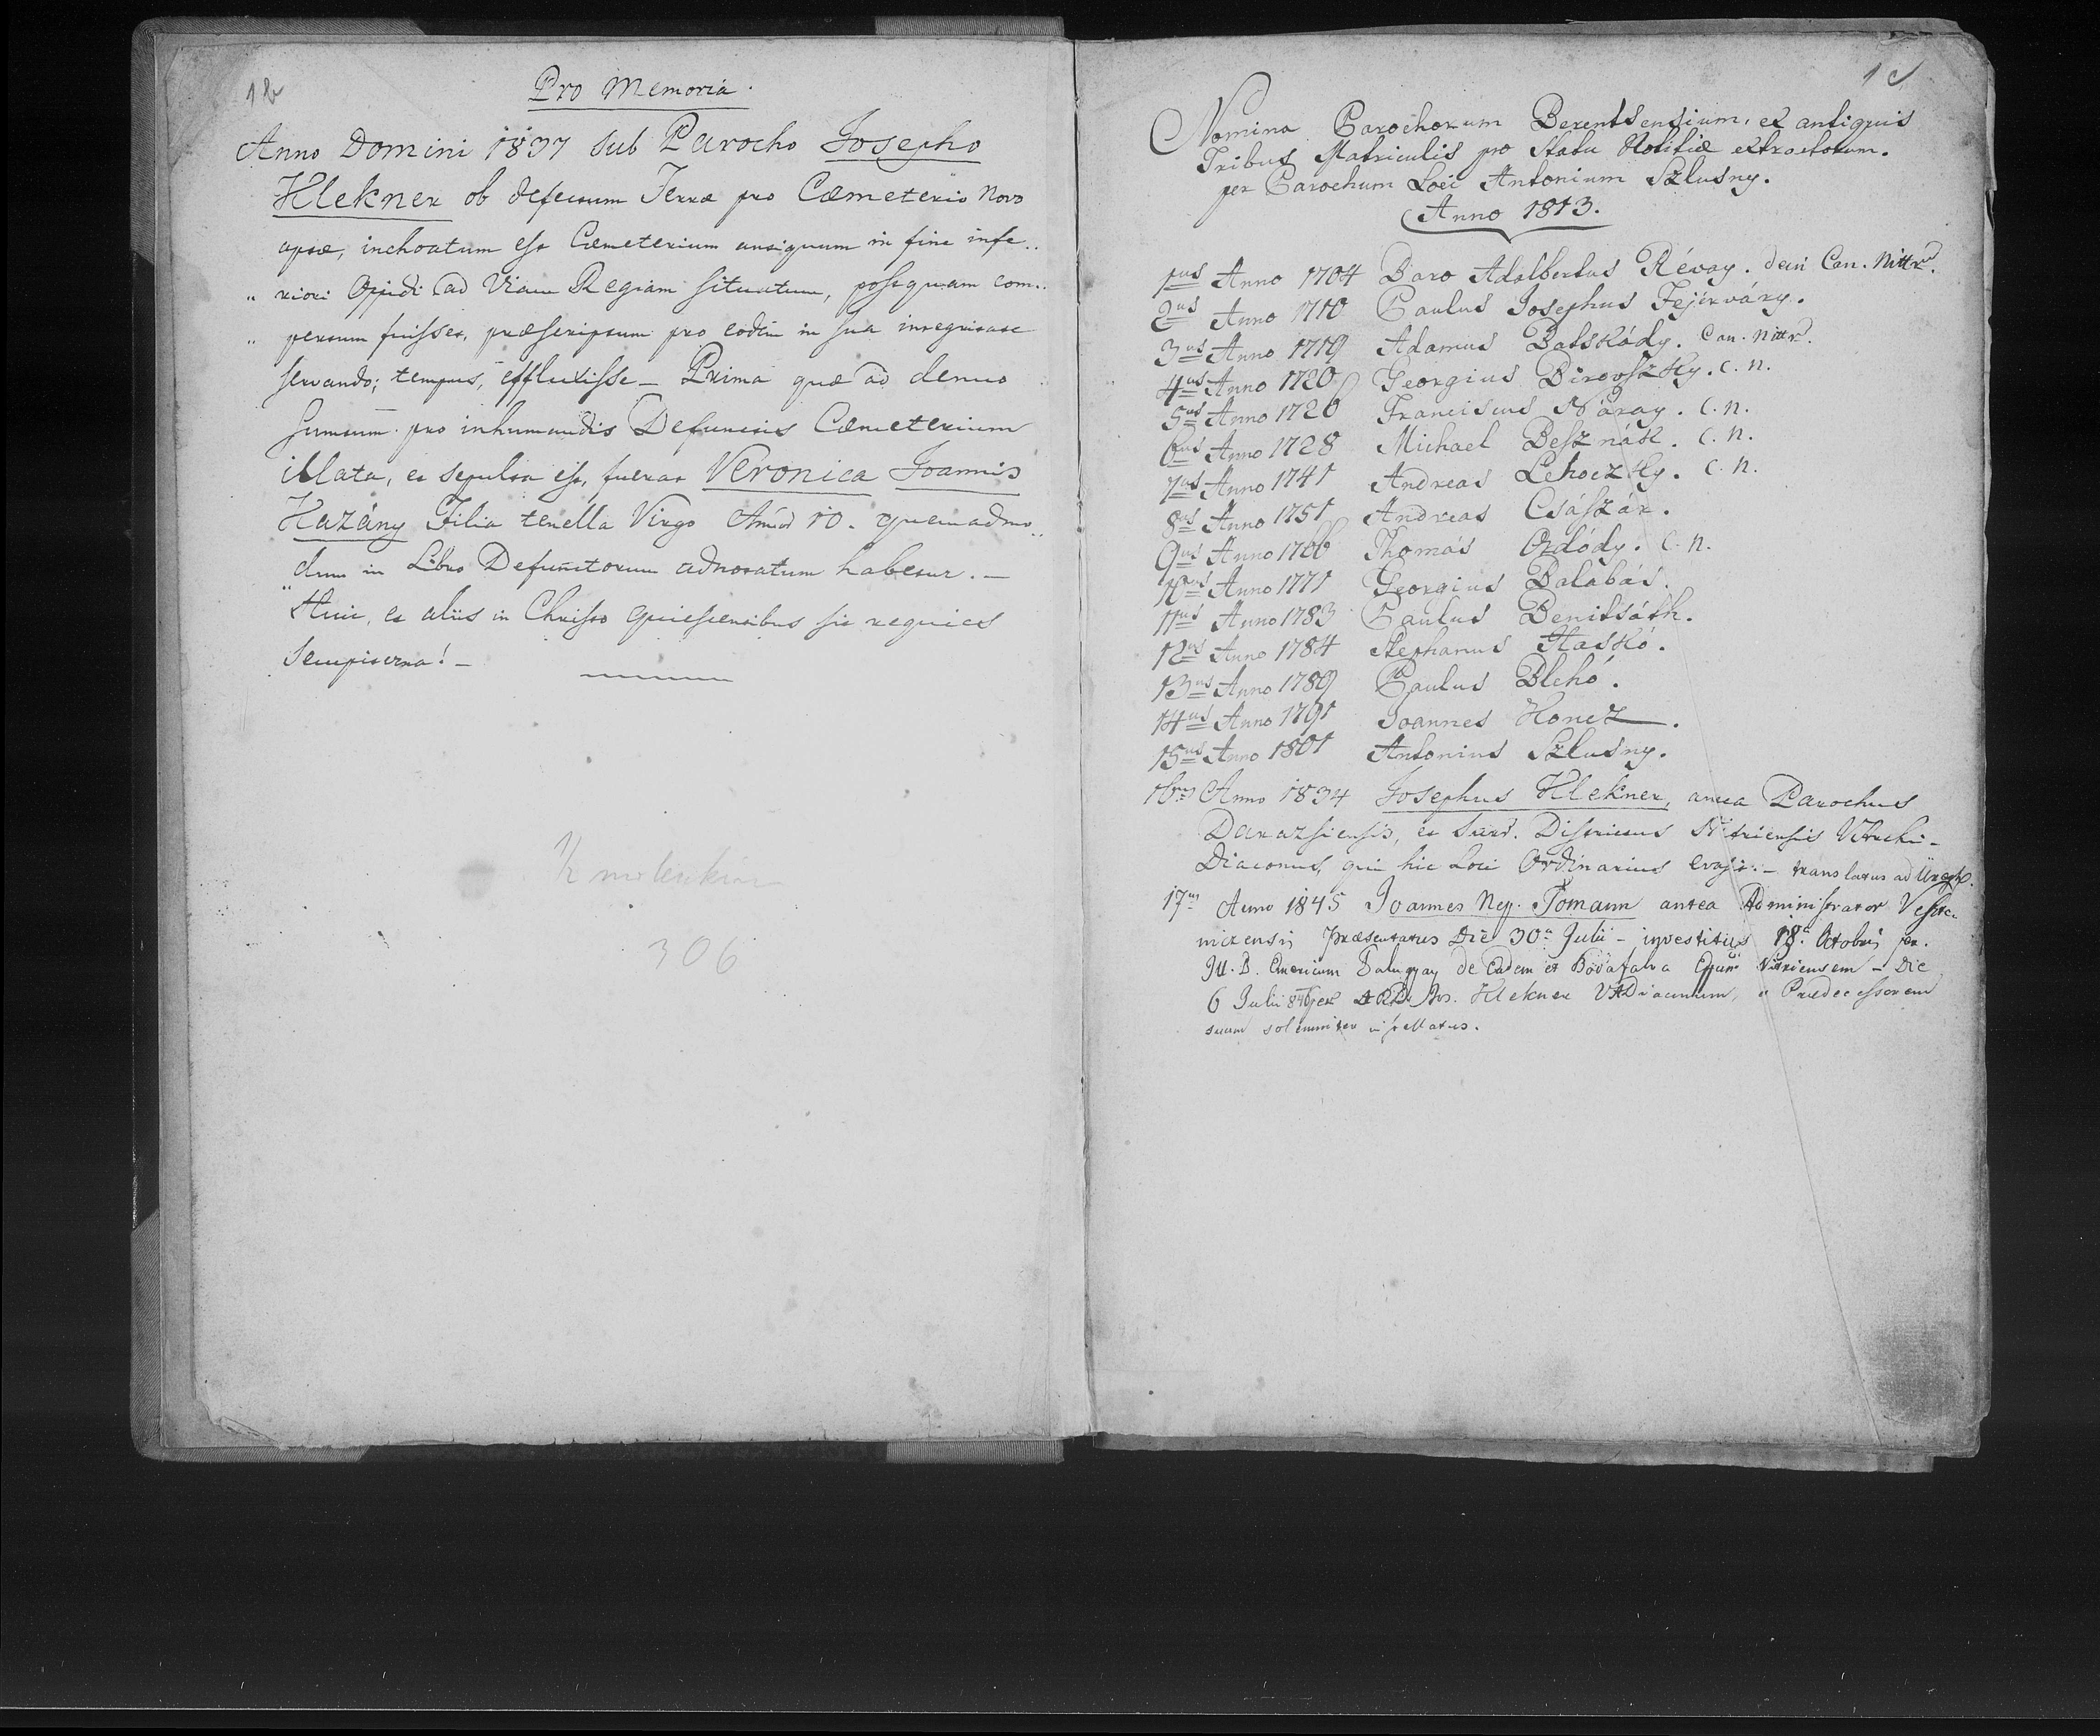 1b
Pro Memoria.
Anno Domini 1837 sub Parocho Josepho
Hlekner ob defectum Terræ pro Cæmeterio Novo
aptæ, inchoatum est Cæmeterium antiquum in fine infe„
„riori Oppidi ad Viam Regiam situatum, postquam com„
„pertum fuisset, præscriptum pro eodem in sua integritate
servando; tempus, effluxisse – Prima quæ ad denuo
sumtum pro inhumandis Defunctis Cæmeterium
illata, et sepulta est, fuerat Veronica Joannis
Hazány Filia tenella Virgo Annor 10. quemadmo„
„dum in Libro Defunctorum adnotatum habetur. –
Huic, et aliis in Christo quiescentibus sit requies
sempiterna! –
306
1c
Nomina Parochorum Berentsensium, ex antiquis
Tribus Matriculis pro Statu Notitiæ extractorum.
per Parochum Loci Antonium Szlusny.
Anno 1813.
1us Anno 1704 Baro Adalbertus Révay. dein Can. Nittr.
2us Anno 1710 Paulus Josephus Fejérváry.
3us Anno 1719 Adamus Batskády. Can. Nittr.
4us Anno 1720 Georgius Birovszky. C. N.
5us Anno 1726 Franciscus Náray. C. N.
6us Anno 1728 Michael Besznák. C. N.
7us Anno 1741 Andreas Lehoczky. C. N.
8us Anno 1751 Andreas Császár.
9us Anno 1766 Thomás Ordódy. C. N.
10us Anno 1771 Georgius Balabás.
11us Anno 1783 Paulus Benitsáth.
12us Anno 1784 Stephanus Staskó.
13us Anno 1789 Paulus Blehó.
14us Anno 1791 Joannes Koncz.
15us Anno 1801 Antonius Szlusny.
16us Anno 1834 Josephus Hlekner, antea Parochus
Darazsiensis, et Surr. Districtus Nitriensis VArchi-
Diaconus, qui hic Loci Ordinarius evasit. – translatus ad Üregh.
17us Anno 1845 Joannes Nep. Tomann antea Administrator
nicensis præsentatus Die 30a Julii – investitus 18a Octobris per
Ill. D. Emericum Palugyay de Eadem et Bodafalva Eppum Nitriensem – Die
6 Julii 846 per Jos. Hlekner VADiaconum, Prædecessorem
suum solemniter installatus.